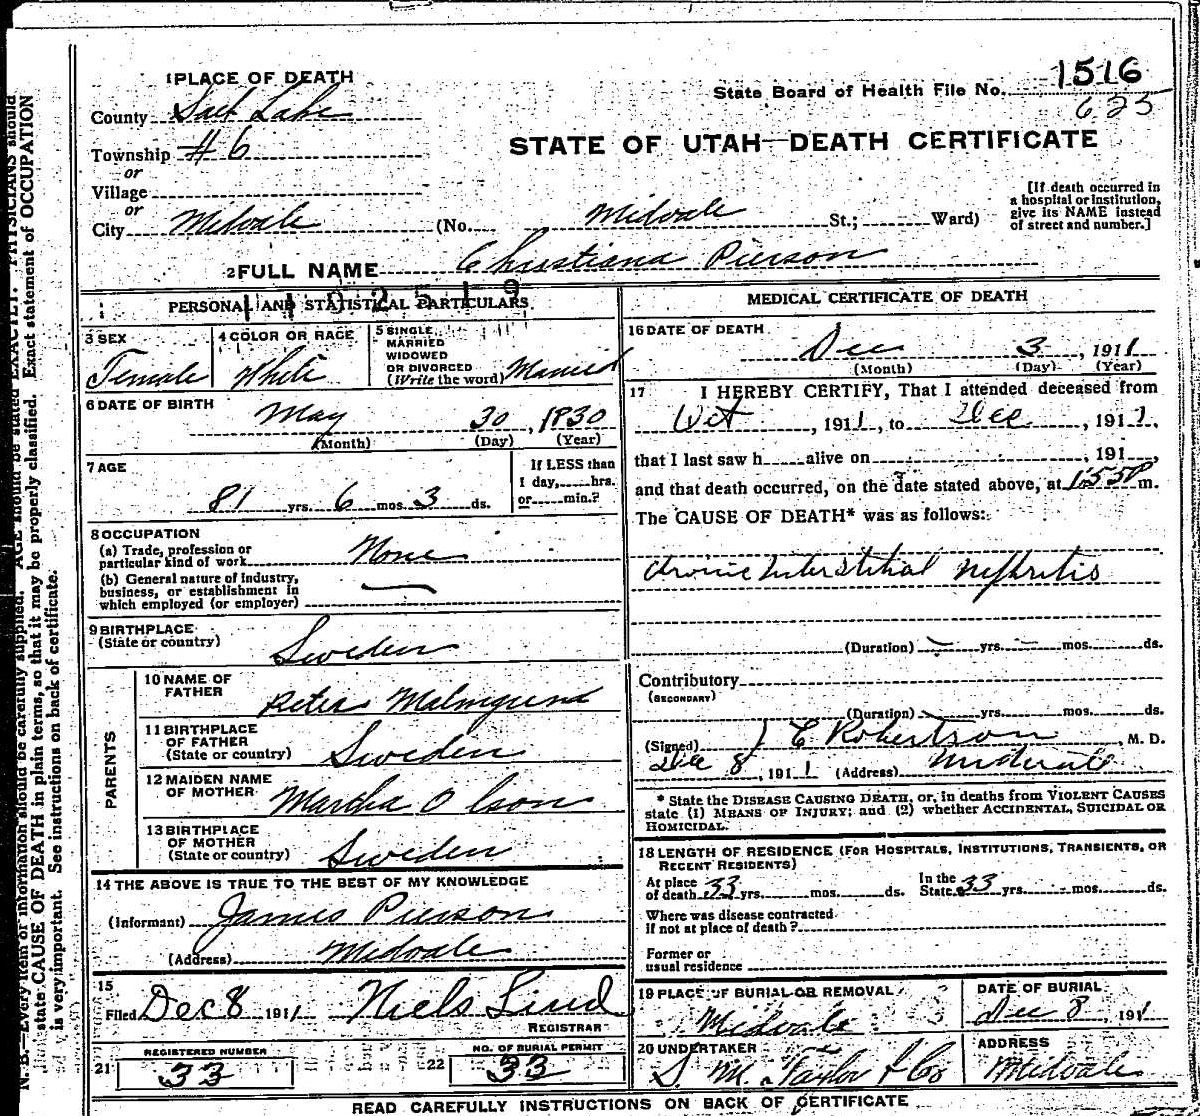 1 PLACE OF DEATH
County Salt Lake
Township #6
or
Village
or
City Midvale (No. Midvale St.; Ward)
State Board of Health File No. 1516
625
STATE OF UTAH—DEATH CERTIFICATE
[If death occurred in
a hospital or institution,
give its NAME instead
of street and number.]
2 FULL NAME Christiana Pierson
1102519
PERSONAL AND STATISTICAL PARTICULARS
3 SEX
Female
4 COLOR OR RACE
White
5 SINGLE
MARRIED
WIDOWED
OR DIVORCED
(Write the word) Married
6 DATE OF BIRTH
May 30, 1830
(Month) (Day) (Year)
7 AGE
81 yrs. 6 mos. 3 ds.
If LESS than
1 day, hrs.
or min.?
8 OCCUPATION
(a) Trade, profession or
particular kind of work None
(b) General nature of Industry,
business, or establishment in
which employed (or employer)
9 BIRTHPLACE
(State or country) Sweden
PARENTS
10 NAME OF
FATHER
Peter
11 BIRTHPLACE
OF FATHER
(State or country) Sweden
12 MAIDEN NAME
OF MOTHER
Martha Olson
13 BIRTHPLACE
OF MOTHER
(State or country) Sweden
14 THE ABOVE IS TRUE TO THE BEST OF MY KNOWLEDGE
(Informant) James Pierson
(Address) Midvale
15
Filed Dec 8 1911 Niels Lind
REGISTRAR
21 REGISTERED NUMBER
33
22 NO. OF BURIAL PERMIT
33
MEDICAL CERTIFICATE OF DEATH
16 DATE OF DEATH
Dec 3, 1911
(Month) (Day) (Year)
17 I HEREBY CERTIFY, That I attended deceased from
Oct, 1911, to Dec, 1911,
that I last saw h alive on , 191 ,
and that death occurred, on the date stated above, at m.
The CAUSE OF DEATH* was as follows:
Chronic Interstitial Nephritis
(Duration) yrs. mos. ds.
Contributory
(SECONDARY)
(Duration) yrs. mos. ds.
(Signed) J E Robertson, M. D.
Dec 8, 1911 (Address) Midvale
* State the DISEASE CAUSING DEATH, or, in deaths from VIOLENT CAUSES
state (1) MEANS OF INJURY; and (2) whether ACCIDENTAL, SUICIDAL OR
HOMICIDAL.
18 LENGTH OF RESIDENCE (FOR HOSPITALS, INSTITUTIONS, TRANSIENTS, OR
RECENT RESIDENTS)
At place
of death 33 yrs. mos. ds.
In the
State 33 yrs. mos. ds.
Where was disease contracted
if not at place of death?
Former or
usual residence
19 PLACE OF BURIAL OR REMOVAL
Midvale
DATE OF BURIAL
Dec 8, 1911
20 UNDERTAKER
S. M. Taylor & Co
ADDRESS
Midvale
READ CAREFULLY INSTRUCTIONS ON BACK OF CERTIFICATE
N. B.—Every item of information should be carefully supplied. AGE should be stated EXACTLY. PHYSICIANS should
state CAUSE OF DEATH in plain terms, so that it may be properly classified. Exact statement of OCCUPATION
is very important. See instructions on back of certificate.